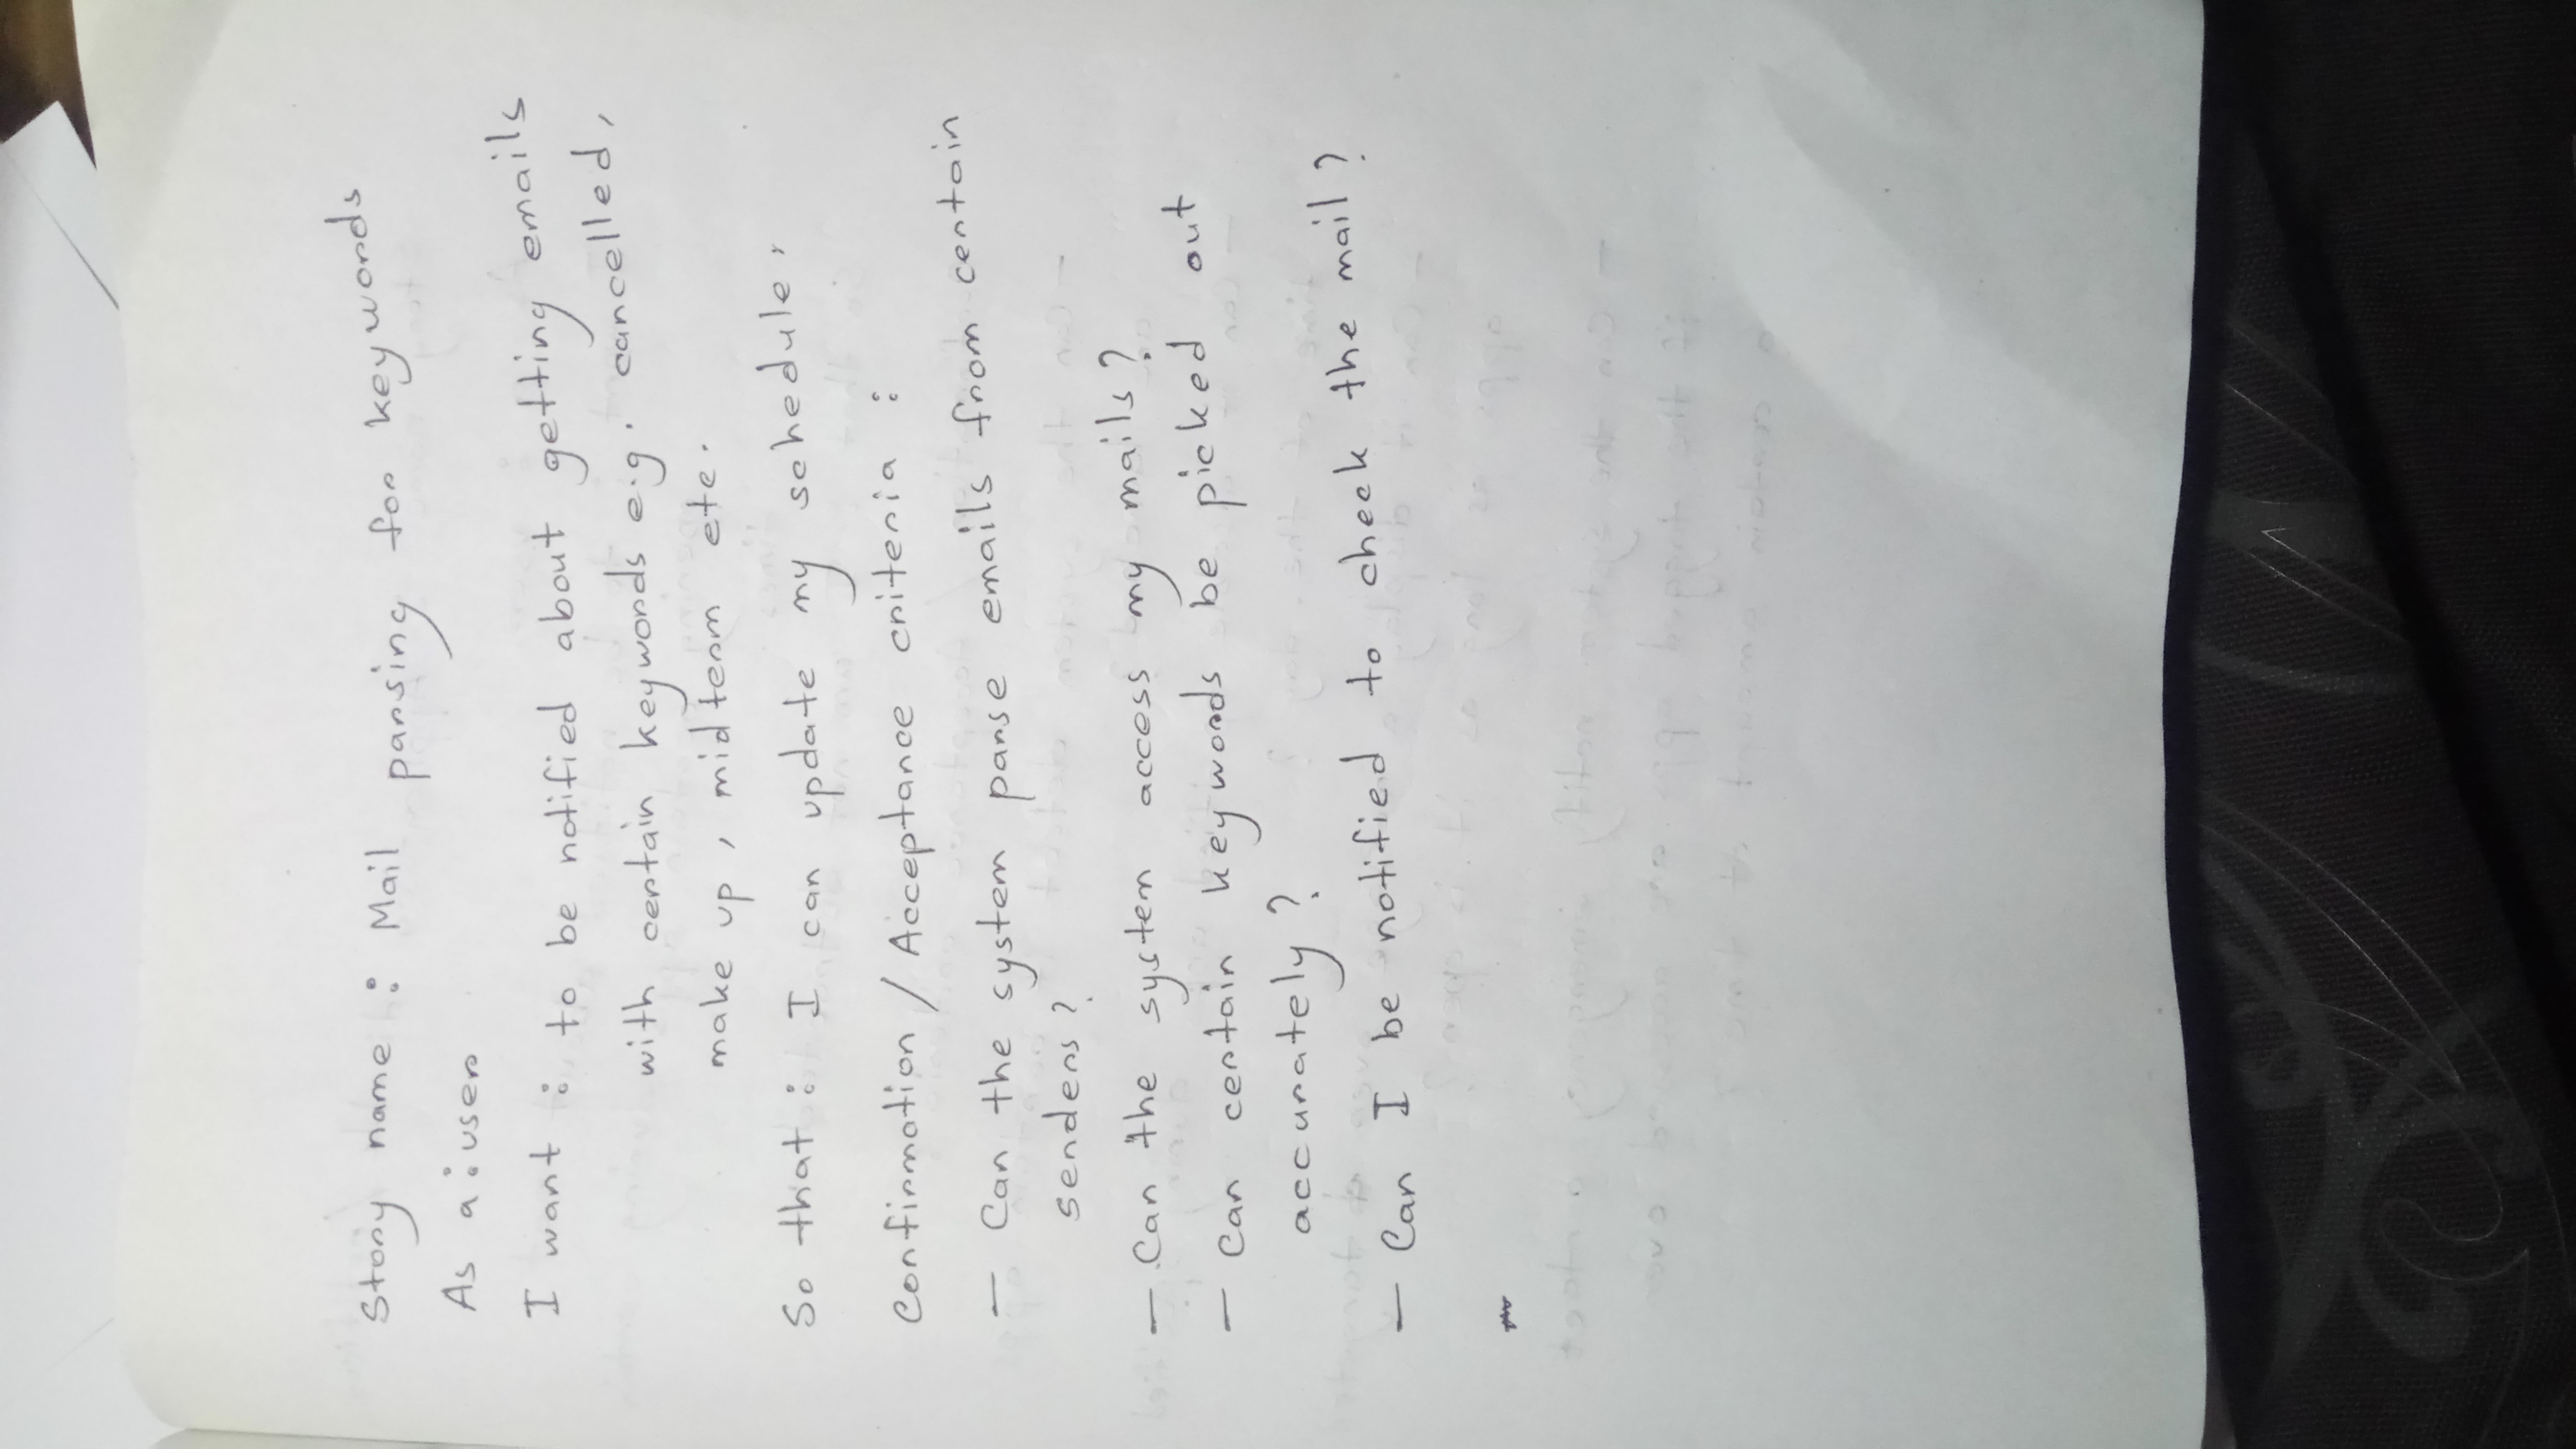 Story name : Mail parsing for keywords
As a : user
I want : to be notified about getting emails
with certain keywords e.g. cancelled,
make up, midterm etc.
So that : I can update my schedule.
Confirmation / Acceptance criteria :
- Can the system parse emails from certain
senders?
- Can the system access my mails?
- Can certain keywords be picked out
accurately?
- Can I be notified to check the mail?